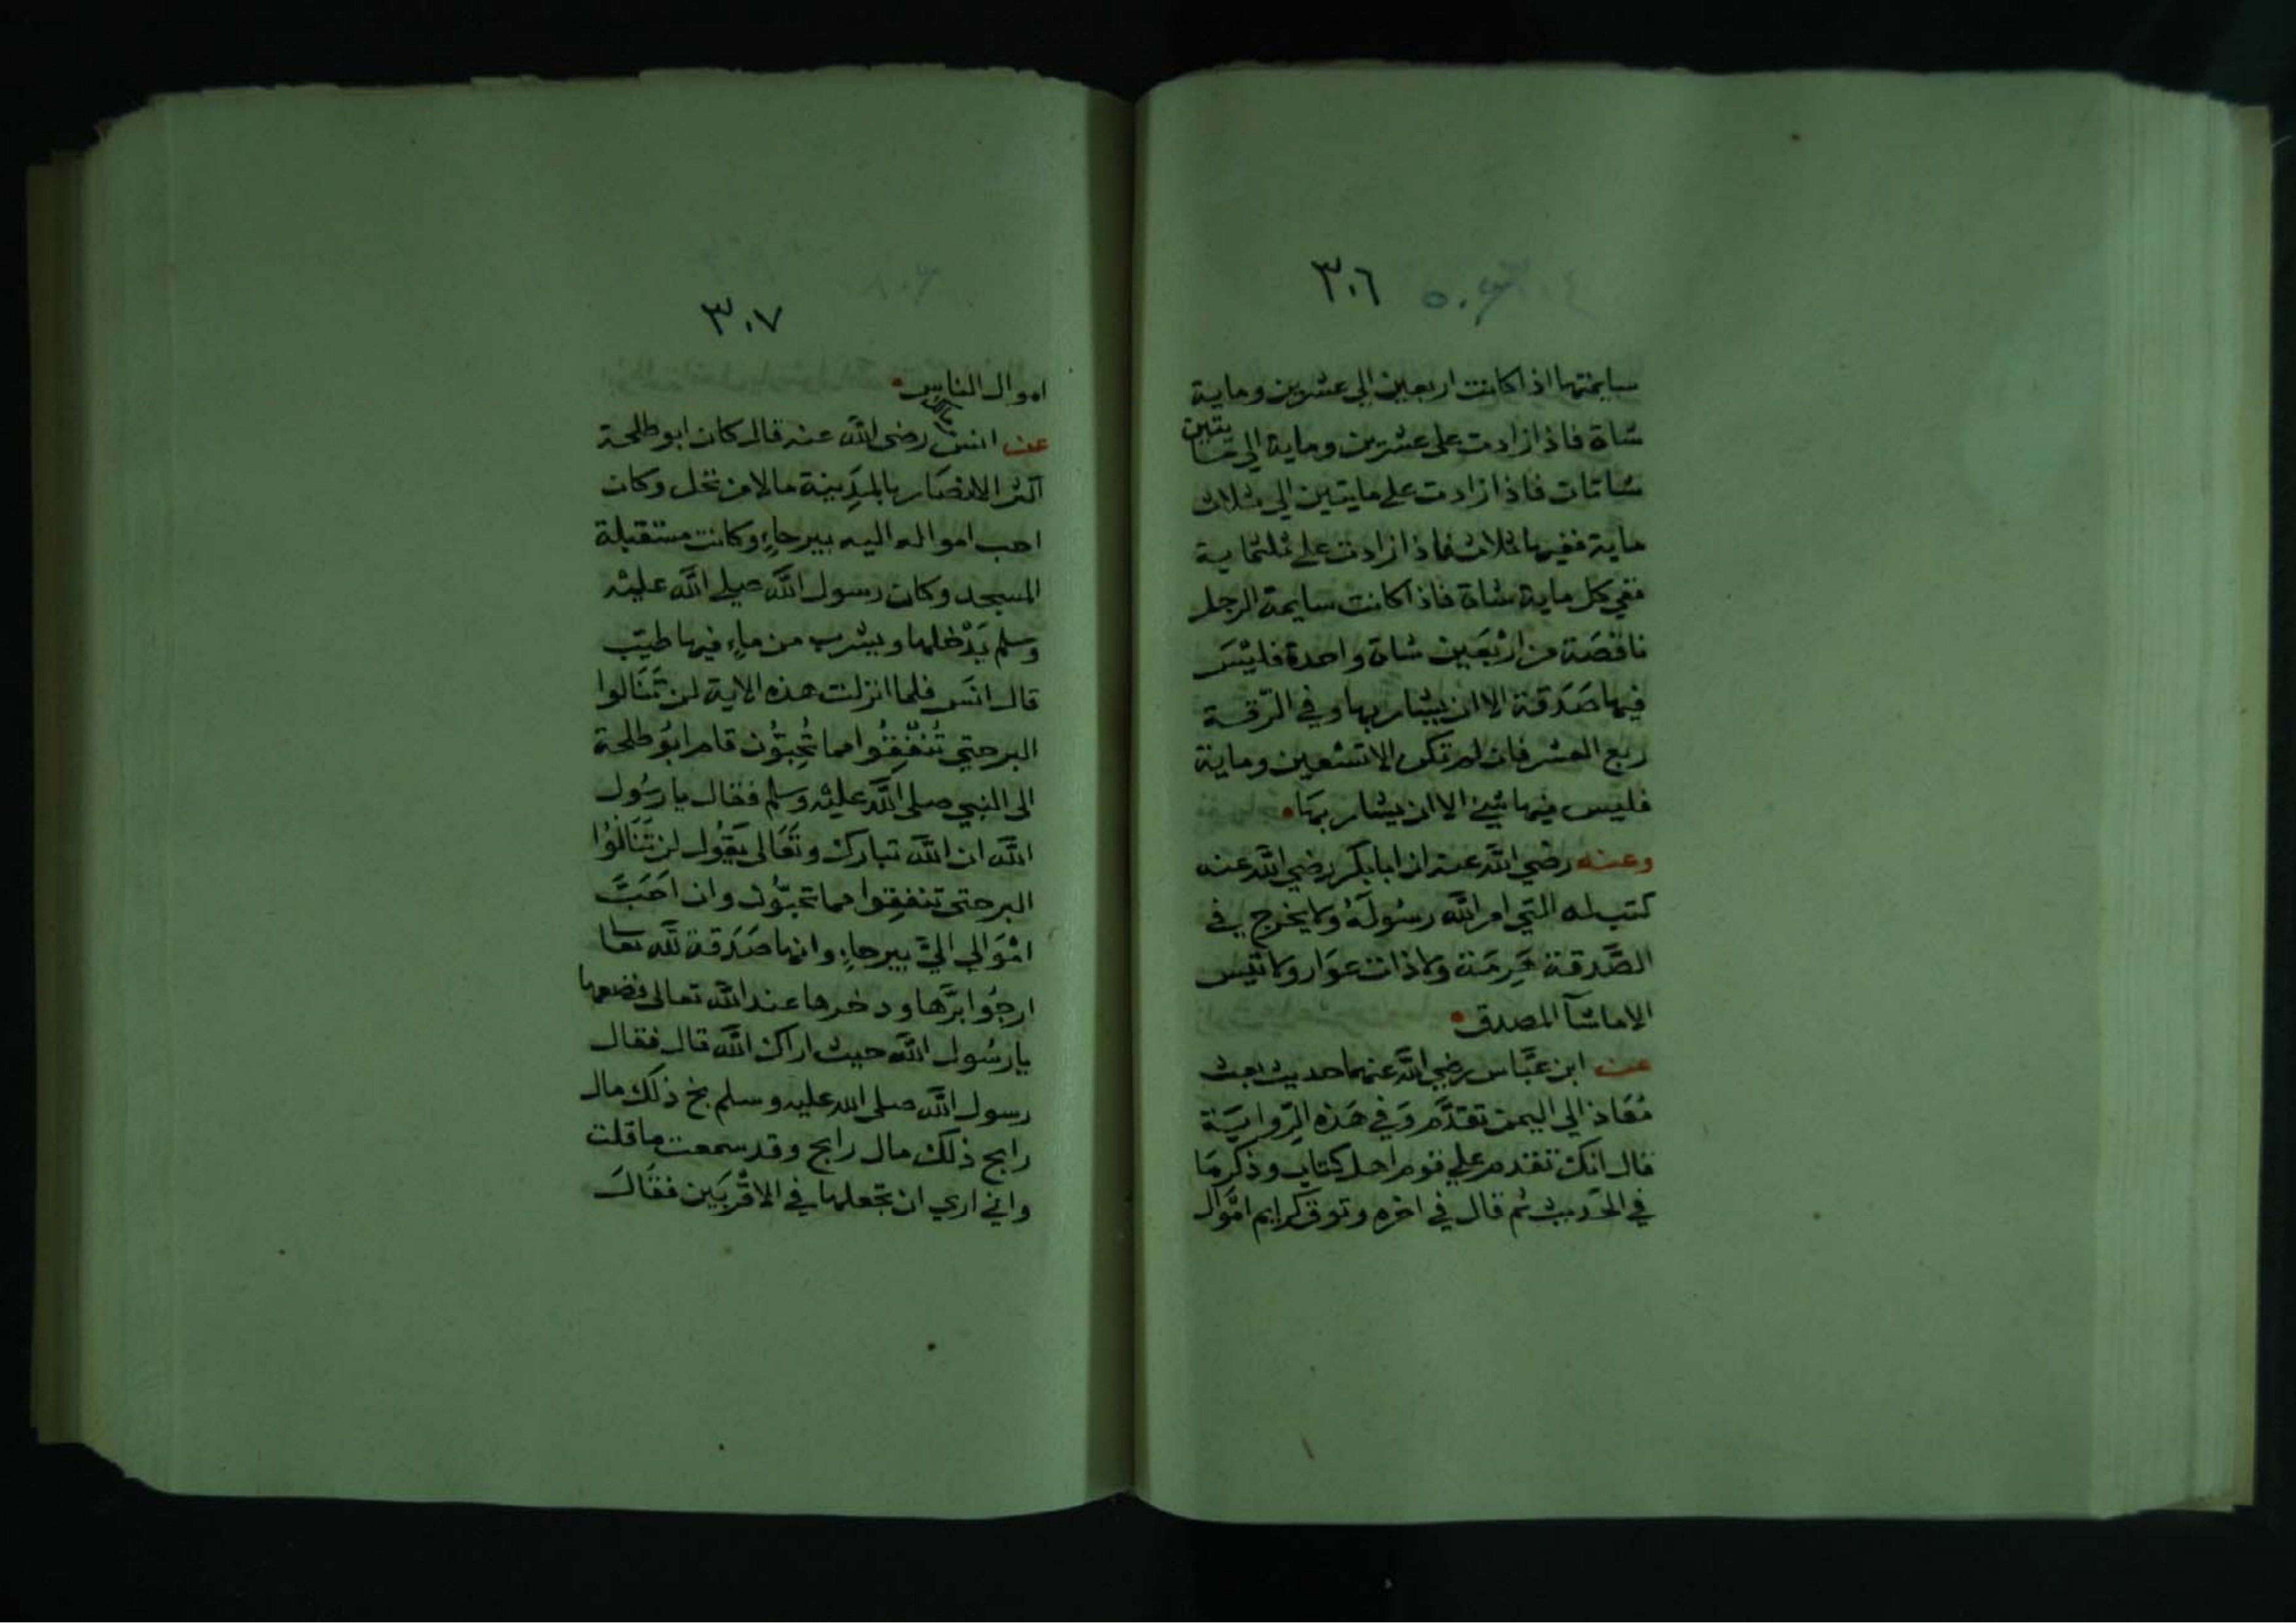 ٣٠٦
سايمتها اذا كانت اربعين الى عشرين وماية
شاة فاذا زادت على عشرين وماية الى مايتين
شاتان فاذا زادت على مايتين الى ثلاث
ماية ففيها ثلاث فاذا زادت على ثلثماية
ففي كل ماية شاة فاذا كانت سايمة الرجل
ناقصَة من ارْبَعين شاة واحدة فليْسَ
فيها صَدَقة الا ان يشا ربها وفي الرّقة
ربع العشر فان لم تكن الا تسْعين وماية
فليس فيها شئ الا ان يشا ربهَا
وعنه رضي الله عنه ان ابا بكر رضي الله عنه
كتب له التي امر الله رسُولَهُ ولا يخرج في
الصَّدقة هَرِمَة ولا ذات عوَار ولا تيْس
الا ماشآ المصدق
عن ابن عبَّاس رضي الله عنهما حديث بعث
مُعَاذ الي اليمن تقدَّم وَفي هَذه الرّوايَة
قال انك تقدم علي قوم اهل كتاب وذكر مَا
في الحَديث ثم قال في اخره وتوق كرايم امْوَال
٣٠٧
اموال الناس
عن انس رضي الله عنه قال كان ابو طلحة
اكثر الانصَار بالمَدِينة مالا من نخل وكان
احب امواله اليه بيرحاءِ وكانت مستقبلة
المسجد وكان رسول الله صلى الله عليْه
وسلم يَدْخلها ويشرب من ماءٍ فيها طيّب
قال انسَ فلما انزلت هذه الاية لن تَنَالوا
البر حتي تُنْفِقُوا مما تُحِبُّون قام ابُو طلحة
الى النبي صلى الله عليْه وسلم فقال يا رسُول
الله ان الله تبارك وتَعَالى يَقُول لن تَنَالُوْا
البر حتى تنفقِوا مما تحبّون وان احَبَّ
امْوَالي اليَّ بيرحاءِ وانها صَدَقة لله تعا
ارجُوا برَّها وذخرها عند الله تعالى فضعها
يا رسُول الله حيث اراك الله قال فقال
رسول الله صلى الله عليه وسلم بخ ذلك مال
رابح ذلك مال رابح وقد سمعت ما قلت
واني اري ان تجعلها في الاقْربَين فقَالَ